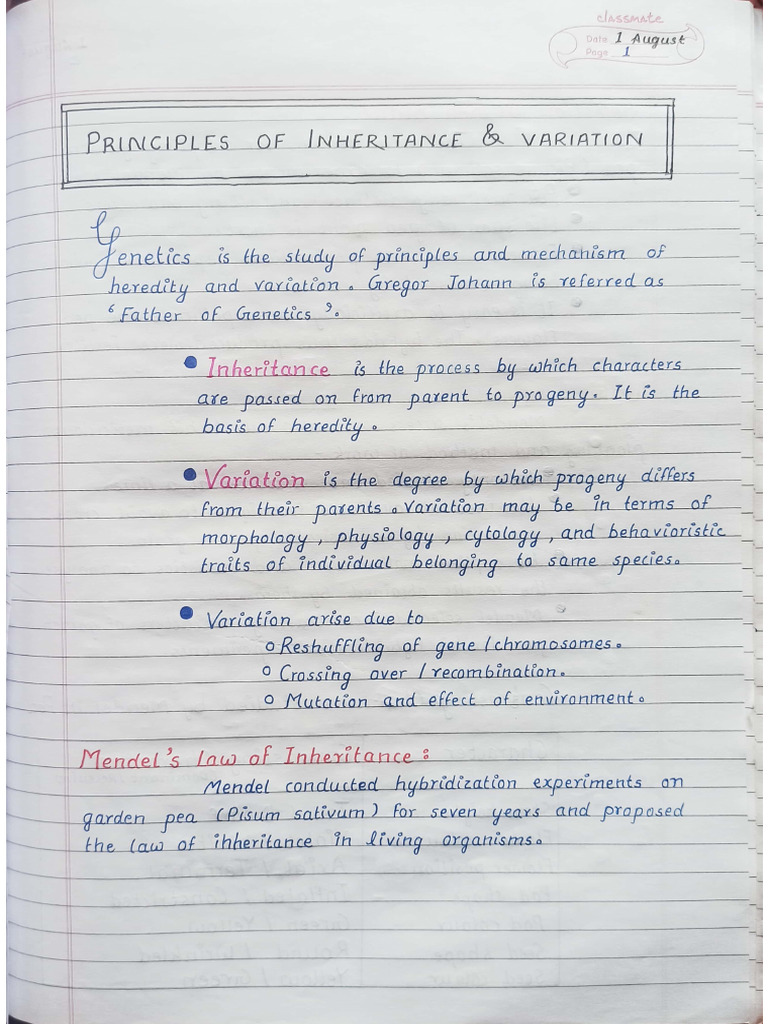 classmate
Date 1 August
Page 1
PRINCIPLES OF INHERITANCE & VARIATION
Genetics is the study of principles and mechanism of
heredity and variation. Gregor Johann is referred as
'Father of Genetics'.
• Inheritance is the process by which characters
are passed on from parent to progeny. It is the
basis of heredity.
• Variation is the degree by which progeny differs
from their parents. Variation may be in terms of
morphology, physiology, cytology, and behavioristic
traits of individual belonging to same species.
• Variation arise due to
o Reshuffling of gene/chromosomes.
o Crossing over/recombination.
o Mutation and effect of environment.
Mendel's Law of Inheritance:
Mendel conducted hybridization experiments on
garden pea (Pisum sativum) for seven years and proposed
the law of ihheritance in living organisms.